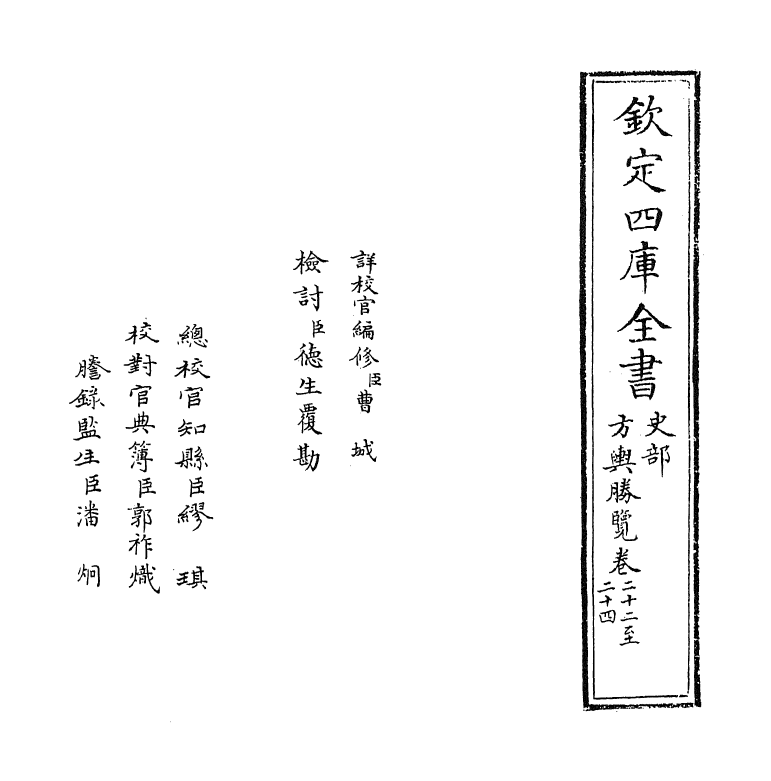 欽定四庫全書
史部
方輿勝覽卷二十二至二十四
詳校官編修臣曹城
檢討臣德生覆勘
總校官知縣臣繆琪
校對官典簿臣郭祚熾
謄錄監生臣潘炯